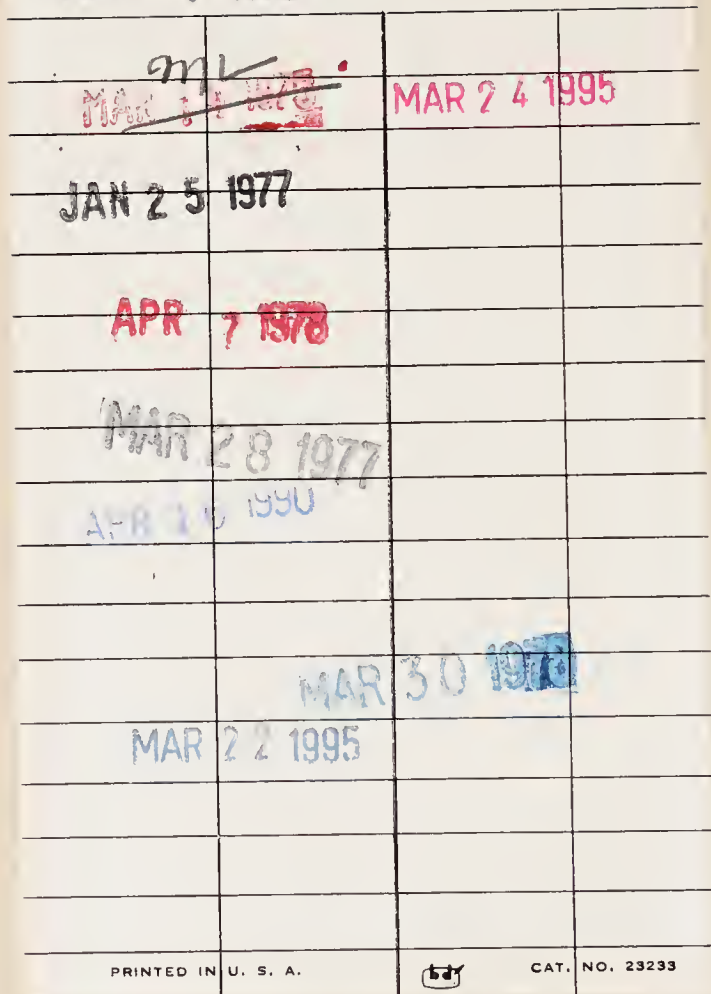 MAR
MAR 24 1995
JAN 25 1977
APR 7 1978
MAR 28 1977
APR 1990
MAR 30 1978
MAR 22 1995
PRINTED IN U. S. A.
bd
CAT. NO. 23233